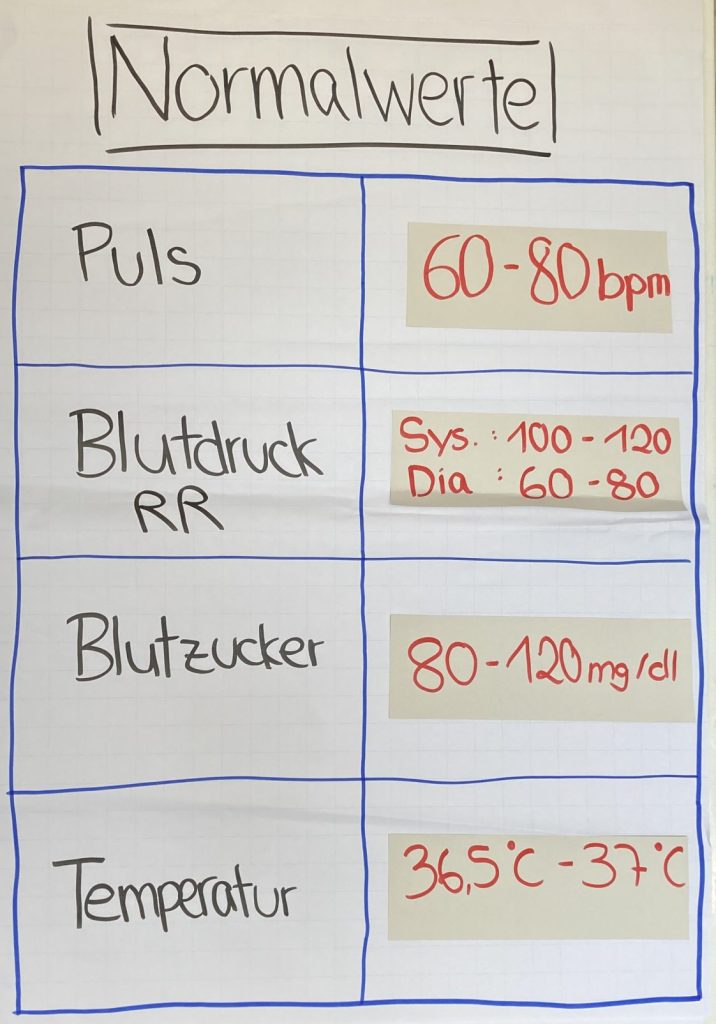 Normalwerte
Puls
60 - 80 bpm
Blutdruck
RR
Sys. : 100 - 120
Dia : 60 - 80
Blutzucker
80 - 120 mg/dl
Temperatur
36,5°C - 37°C